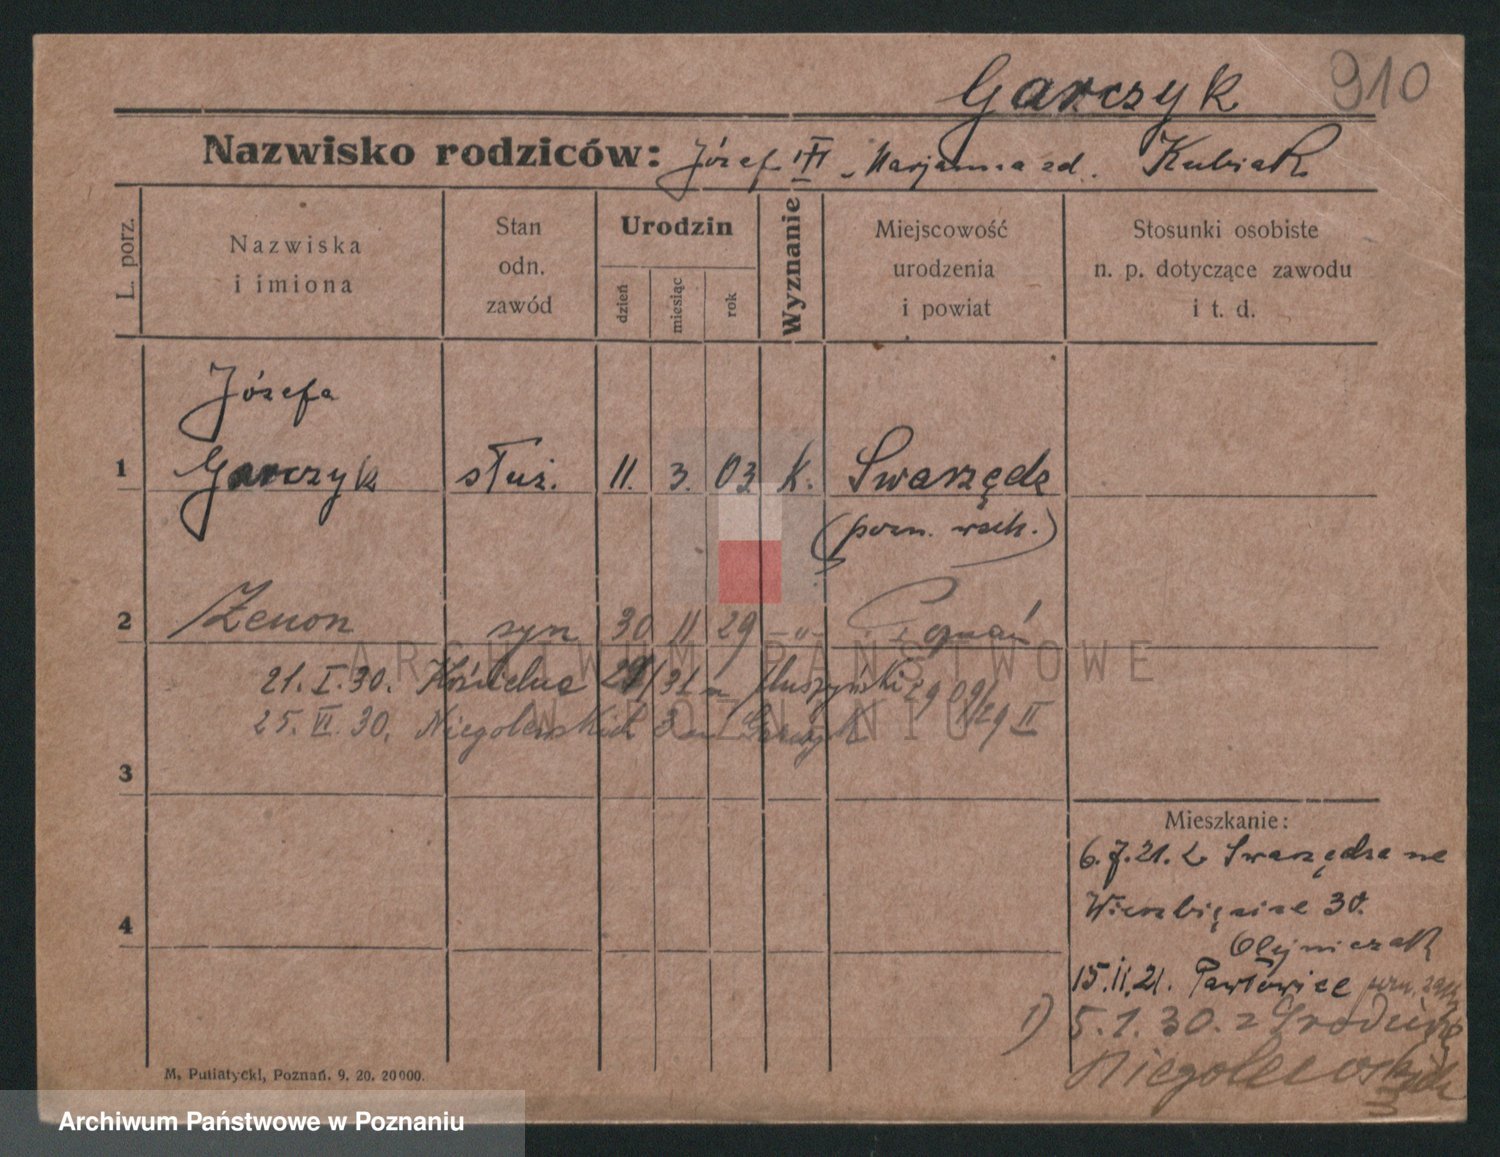 Garczyk 910
Nazwisko rodziców: Józef Marjanna zd. Kubiak
L. porz.
Nazwiska
i imiona
Stan
odn.
zawód
Urodzin
dzień
miesiąc
rok
Wyznanie
Miejscowość
urodzenia
i powiat
Stosunki osobiste
n. p. dotyczące zawodu
i t. d.
Józefa
1 Garczyk służ. 11. 3. 03 K. Swarzędz
(pozn. wsch.)
2 Zenon syn 30 11 29 -"- Poznań
21. I. 30. Kościelna 29/31 m
25. VI. 30. Niegolewskich 3 m Garczyk
3
4
Mieszkanie:
6. 7. 21. z Swarzędza na
Wierzbięcice 30.
Olejniczak
15. 11. 21. Pawłowice pozn. zach.
1) 5. 1. 30. z
Niegolewskich
M. Putiatycki, Poznań. 9. 20. 20000.
ARCHIWUM PAŃSTWOWE
W POZNANIU
Archiwum Państwowe w Poznaniu